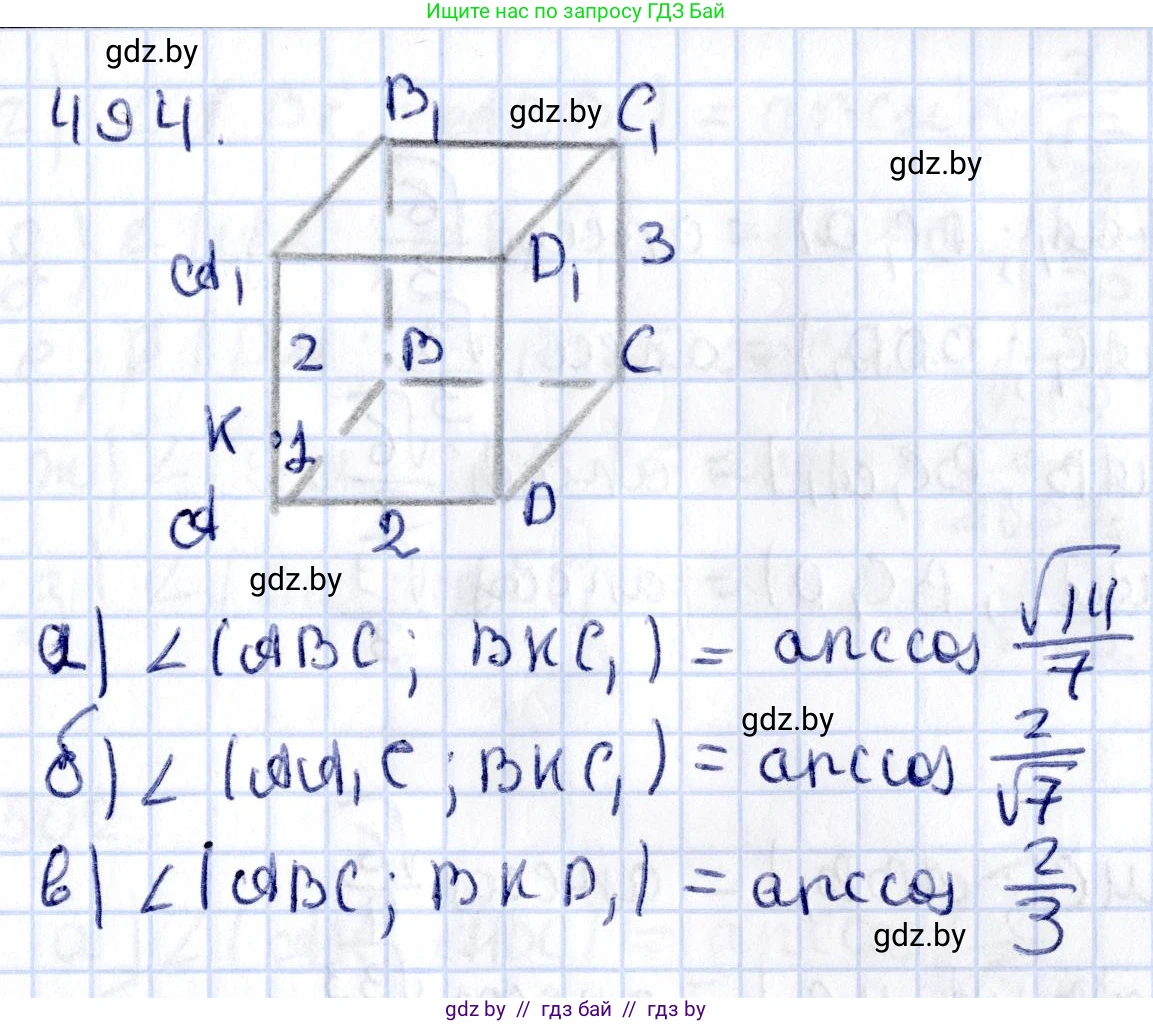 Ищите нас по запросу ГДЗ Бай
gdz.by
494.
B₁
gdz.by
C₁
gdz.by
A₁
D₁
3
2
B
C
K
1
A
2
D
gdz.by
а) ∠(ABC; BKC₁) = arccos √14/7
gdz.by
б) ∠(AA₁C; BKC₁) = arccos 2/√7
в) ∠(ABC; BKD₁) = arccos 2/3
gdz.by
gdz by // гдз бай // гдз by